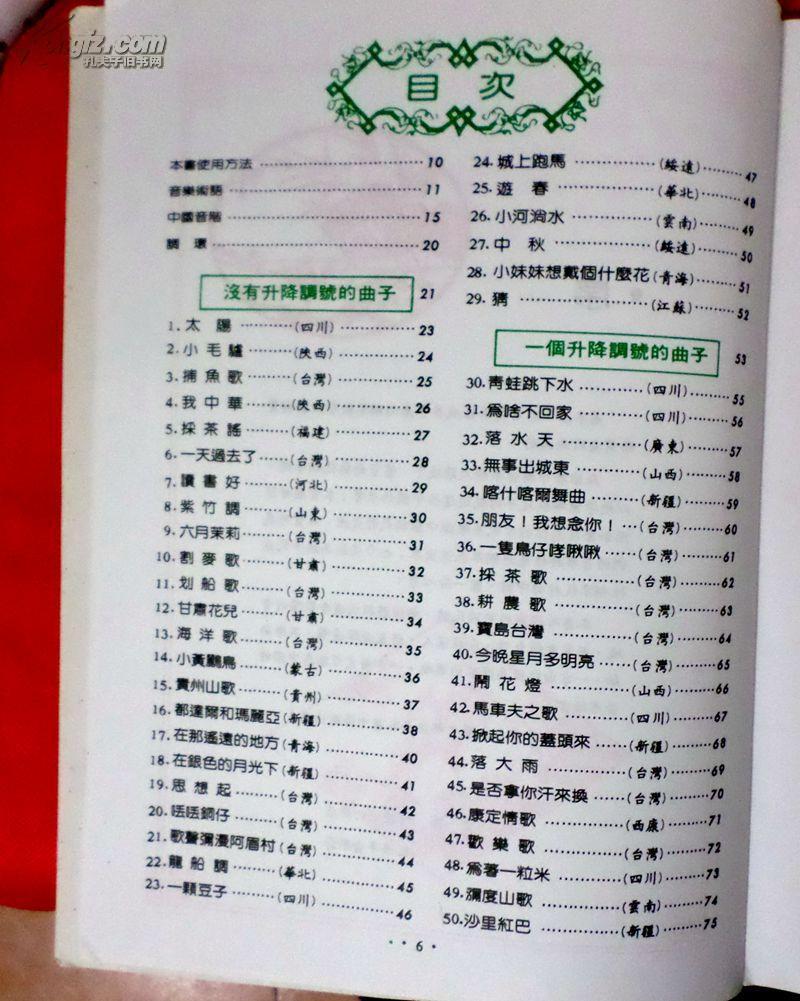 Kongfz.com
孔夫子旧书网
目次
本書使用方法 10
音樂術語 11
中國音階 15
調環 20
沒有升降調號的曲子 21
1. 太陽 (四川) 23
2. 小毛驢 (陝西) 24
3. 捕魚歌 (台灣) 25
4. 我中華 (陝西) 26
5. 採茶謠 (福建) 27
6. 一天過去了 (台灣) 28
7. 讀書好 (河北) 29
8. 紫竹調 (山東) 30
9. 六月茉莉 (台灣) 31
10. 割麥歌 (甘肅) 32
11. 划船歌 (台灣) 33
12. 甘肅花兒 (甘肅) 34
13. 海洋歌 (台灣) 35
14. 小黃鸝鳥 (蒙古) 36
15. 貴州山歌 (貴州) 37
16. 都達爾和瑪麗亞 (新疆) 38
17. 在那遙遠的地方 (青海) 40
18. 在銀色的月光下 (新疆) 41
19. 思想起 (台灣) 42
20. 丟丟銅仔 (台灣) 43
21. 歌聲瀰漫阿眉村 (台灣) 44
22. 龍船調 (華北) 45
23. 一顆豆子 (四川) 46
24. 城上跑馬 (綏遠) 47
25. 遊春 (華北) 48
26. 小河淌水 (雲南) 49
27. 中秋 (綏遠) 50
28. 小妹妹想戴個什麼花 (青海) 51
29. 猜 (江蘇) 52
一個升降調號的曲子 53
30. 青蛙跳下水 (四川) 55
31. 為啥不回家 (四川) 56
32. 落水天 (廣東) 57
33. 無事出城東 (山西) 58
34. 喀什喀爾舞曲 (新疆) 59
35. 朋友！我想念你！ (台灣) 60
36. 一隻鳥仔哮啾啾 (台灣) 61
37. 採茶歌 (台灣) 62
38. 耕農歌 (台灣) 63
39. 寶島台灣 (台灣) 64
40. 今晚星月多明亮 (台灣) 65
41. 鬧花燈 (山西) 66
42. 馬車夫之歌 (四川) 67
43. 掀起你的蓋頭來 (新疆) 68
44. 落大雨 (台灣) 69
45. 是否拿你汗來換 (台灣) 70
46. 康定情歌 (西康) 71
47. 歡樂歌 (台灣) 72
48. 為著一粒米 (四川) 73
49. 彌度山歌 (雲南) 74
50. 沙里紅巴 (新疆) 75
6